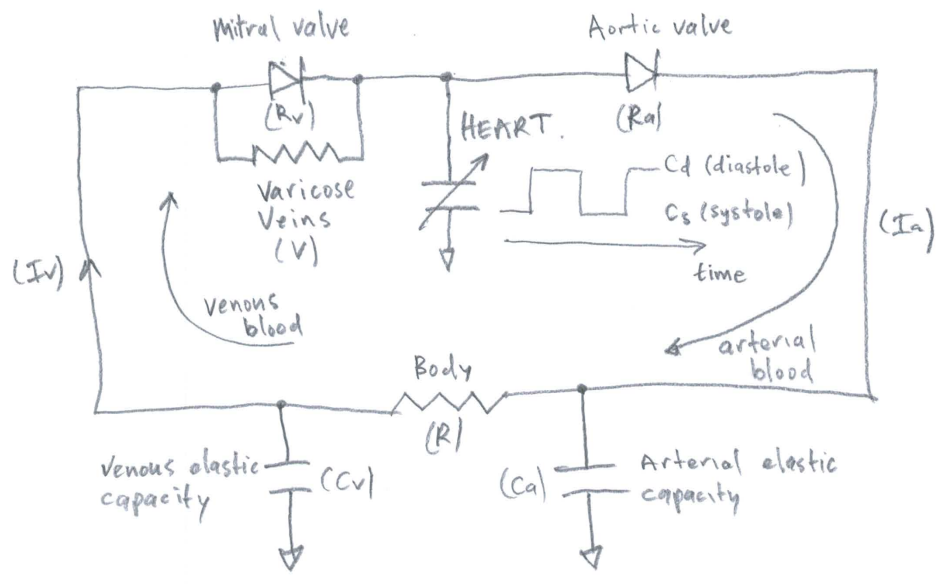 Mitral valve
Aortic valve
(Rv)
(Ra)
HEART.
Varicose
Veins
(V)
Cd (diastole)
Cs (systole)
time
(Ia)
(Iv)
venous
blood
arterial
blood
Body
(R)
Venous elastic
capacity
(Cv)
(Ca)
Arterial elastic
capacity